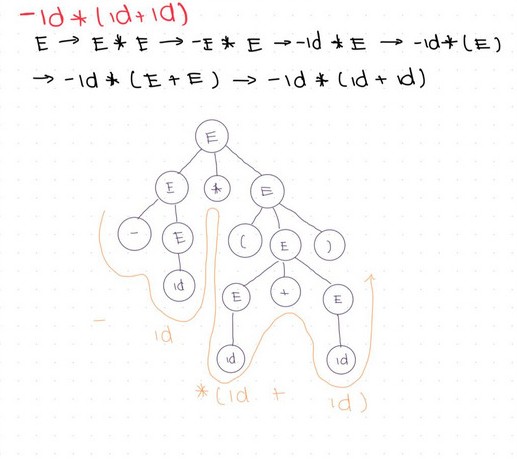 -id*(id+id)
E → E * E → -E * E → -id * E → -id*(E)
→ -id * (E + E) → -id * (id + id)
E
E * E
- E ( E )
id E + E
id id
- id
*(id + id)